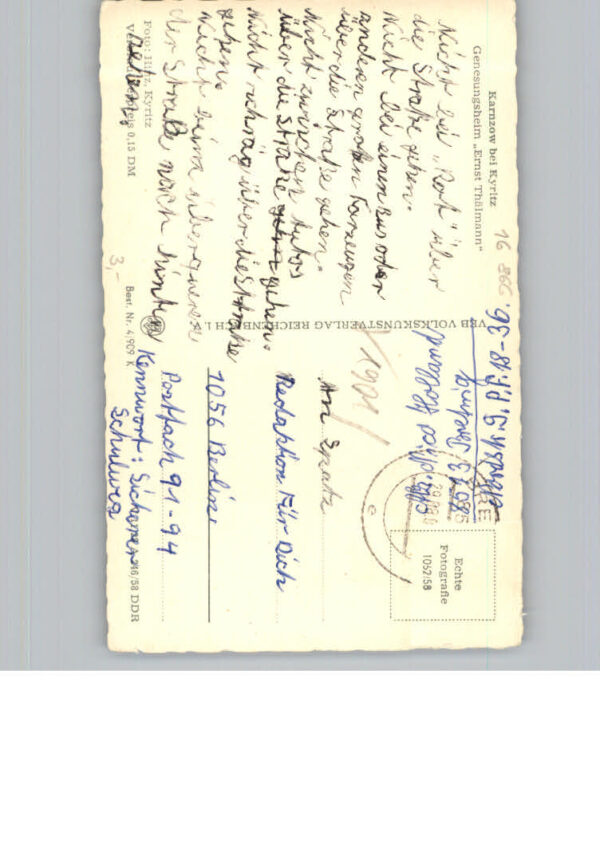 Karnzow bei Kyritz
Genesungsheim „Ernst Thälmann"
Nicht bei „Rot" über
die Straße gehen.
Nicht bei einen Bus oder
anderen großen Farzeugen
über die Straße gehen.
Nicht zwischen Autos
über die Straße gehen.
Nicht schräg über die Straße
gehen.
Nicht beim überqueren
der Straße nach hinten
Foto: Hinz, Kyritz
0,15 DM
3,-
Best. Nr. 4/909 K
VEB VOLKSKUNSTVERLAG REICHENBACH I. V.
16 866
1901
Echte
Fotografie
1062/58
An Spatz
Redaktion Für Dich
1056 Berlin
Postfach 91-94
Kennwort: Sicherer
Schulweg
/58 DDR